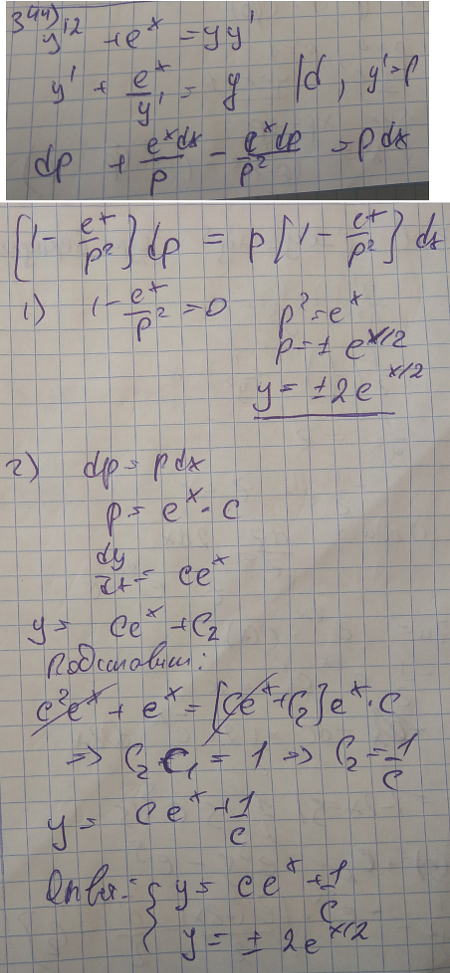 3(44)
y'² + eˣ = yy'
y' + eˣ/y' = y |d, y'=p
dp + eˣdx/p - eˣdp/p² = pdx
[1 - eˣ/p²] dp = p [1 - eˣ/p²] dx
1) 1 - eˣ/p² = 0
p² = eˣ
p = ± e^(x/2)
y = ±2e^(x/2)
2) dp = pdx
p = eˣ · C
dy/dx = Ceˣ
y = Ceˣ + C₂
Подставим:
C²eˣ + eˣ = [Ceˣ + C₂] eˣ · C
=> C₂ · C₁ = 1 => C₂ = 1/C
y = Ceˣ + 1/C
Ответ: { y = Ceˣ + 1/C
y = ± 2e^(x/2)